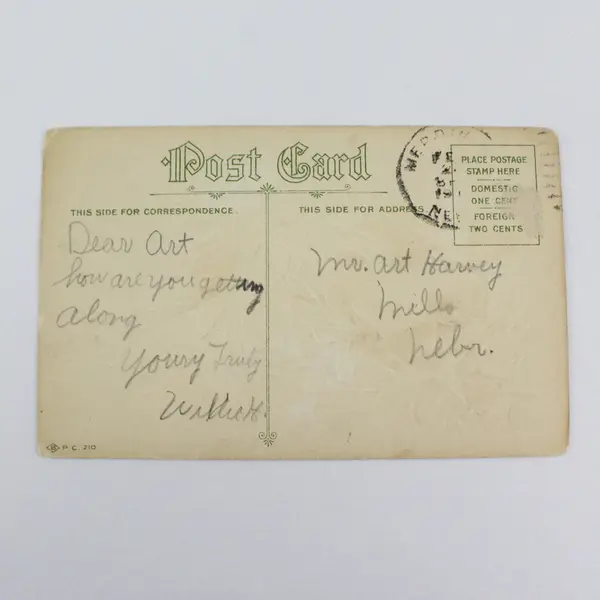 Post Card
THIS SIDE FOR CORRESPONDENCE.
THIS SIDE FOR ADDRESS.
PLACE POSTAGE
STAMP HERE
DOMESTIC
ONE CENT
FOREIGN
TWO CENTS
Dear Art
how are you getting
along
Youry Truly
Willie H.
Mr. Art Harvey
Mills
Nebr.
P.C. 210